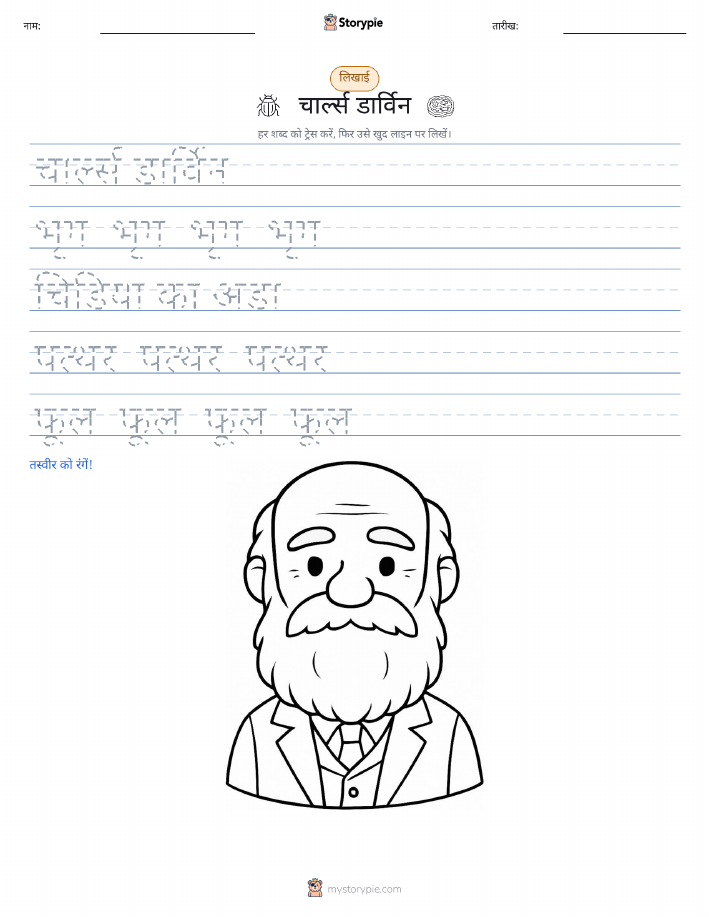 नाम:
Storypie
तारीख:
लिखाई
चार्ल्स डार्विन
हर शब्द को ट्रेस करें, फिर उसे खुद लाइन पर लिखें।
चार्ल्स डार्विन
भृंग भृंग भृंग भृंग
चिड़िया का अंडा
पत्थर पत्थर पत्थर
फूल फूल फूल फूल
तस्वीर को रंगें!
mystorypie.com